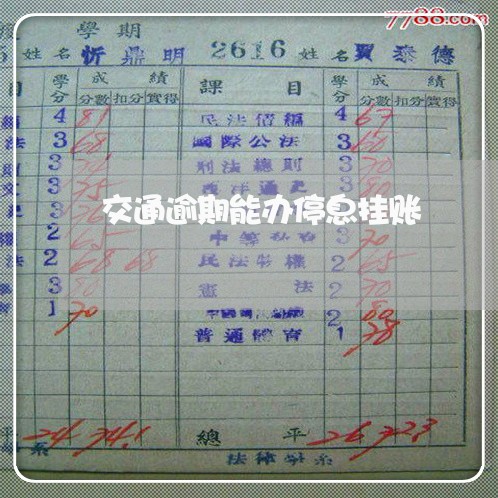 7788.com
學期
5 姓名 忻鼎明 2616 姓名 賈泰德
目 學分 成績 課目 學分 成績
分數 扣分 實得 分數 扣分 實得
4 81 民法債編 4 67
法 3 68 國際公法 3 60
3 刑法總則 3 70
3 75 西洋通史 3 80
交通逾期能办停息挂账
2 65 3 70
法 2 68 68 民法物權 2 65
3 80 憲法 2 70
1 70 2 80
普通體育 1 78
平 24 74.1 總平 26 72.3
系 法律學系